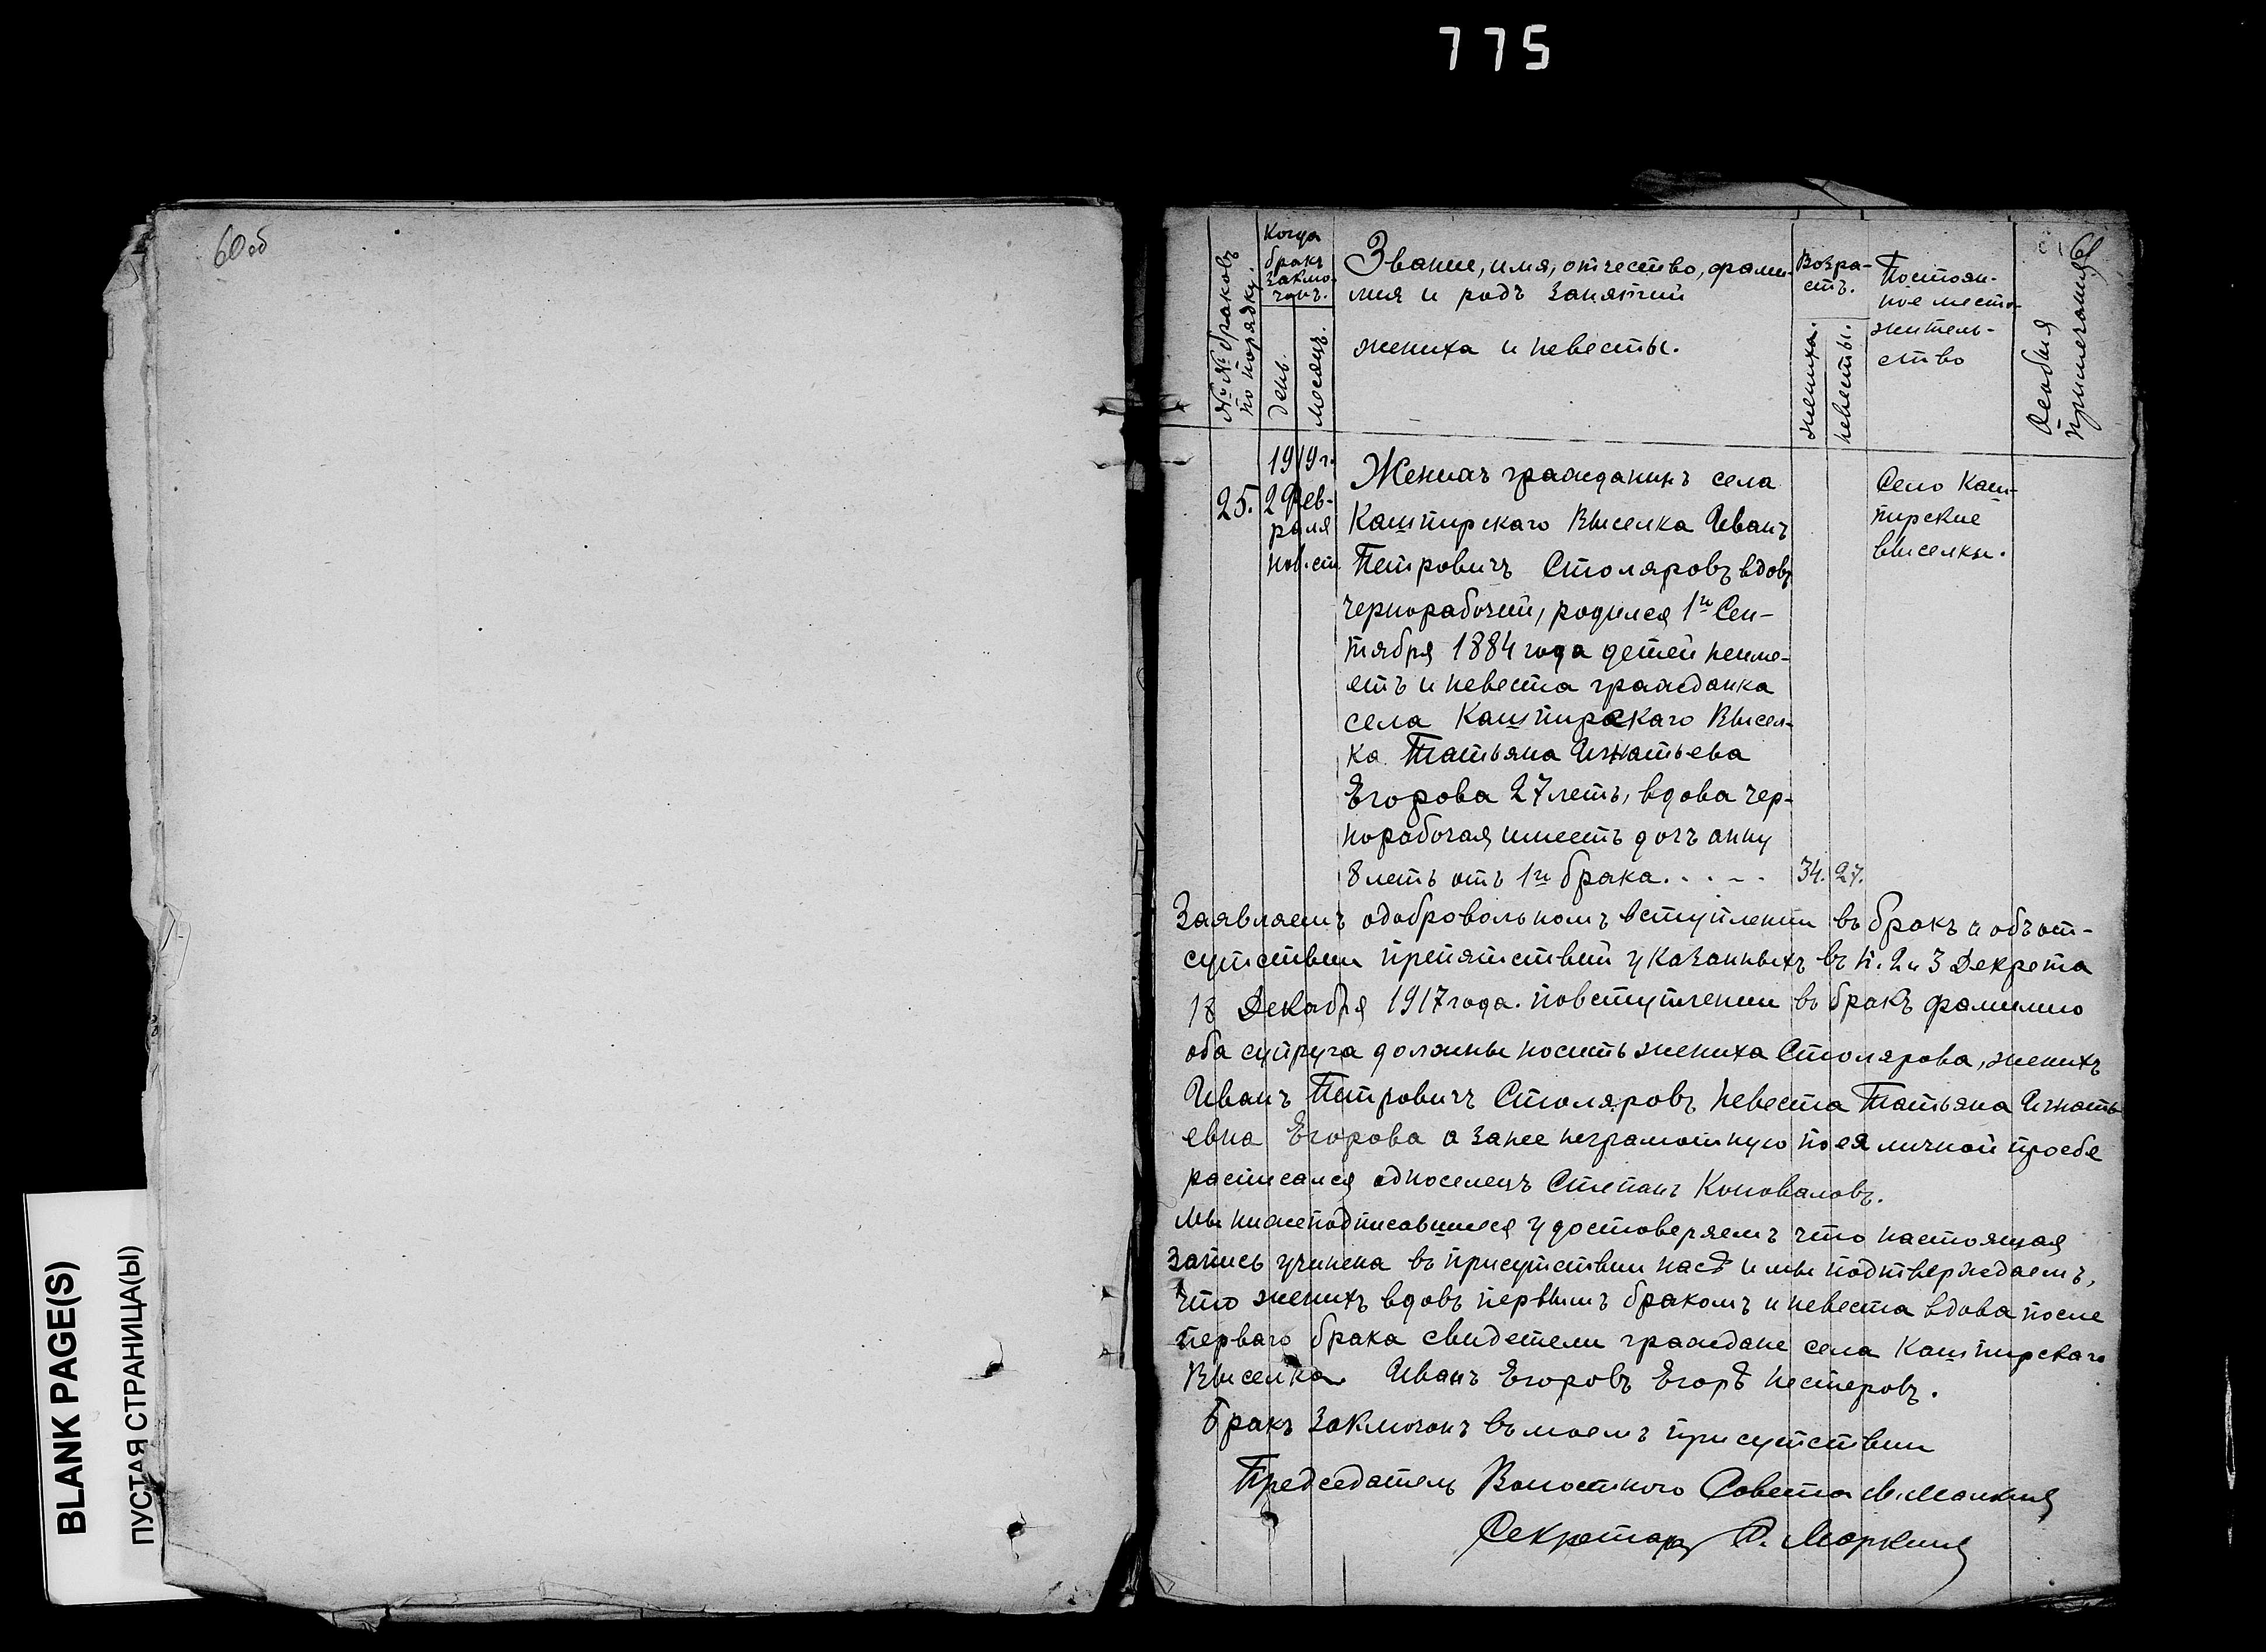 775
60об
BLANK PAGE(S)
ПУСТАЯ СТРАНИЦА(Ы)
61
№№ браковъ
по порядку.
Когда
бракъ
заклю-
чонъ.
день.
месяцъ.
Звание, имя, отчество, фами-
лия и родъ занятий
жениха и невесты.
Возра-
стъ.
жениха.
невесты.
Постоян-
ное место-
житель-
ство
Особыя
примечания
25.
1919г.
2 Фев-
раля
нов.ст.
Женихъ гражданинъ села
Каштирскаго Выселка Иванъ
Петровичъ Столяровъ вдовъ
чернорабочий, родился 1го Сен-
тября 1884 года детей неиме-
етъ и невеста гражданка
села Каштирскаго Высел-
ка Татьяна Игнатьева
Егорова 27 летъ, вдова чер-
норабочая имеетъ дочъ анну
8 летъ отъ 1го брака. . . . .
34. 27.
Село Каш-
тирские
выселки.
Заявляемъ одобровольномъ вступлении въ бракъ и объот-
сутствии препятствий указанныхъ въ п. 2 и 3 Декрета
18 Декабря 1917 года. повступлении въ бракъ фамилию
оба супруга должны носить жениха Столярова, женихъ
Иванъ Петровичъ Столяровъ Невеста Татьяна Игнать
евна Егорова а занее неграмотную по ея личной просбе
расписался односелецъ Степанъ Коноваловъ.
Мы нижеподписавшиеся удостоверяемъ что настоящая
запись учинена въ присутствии насъ и мы подтверждаемъ,
что женихъ вдовъ первымъ бракомъ и невеста вдова после
перваго брака свидетели граждане села Каштирскаго
Выселка Иванъ Егоровъ Егоръ Нестеровъ.
бракъ заключонъ въ моемъ присутствии
Председатель Волостного Совета
Секретарь